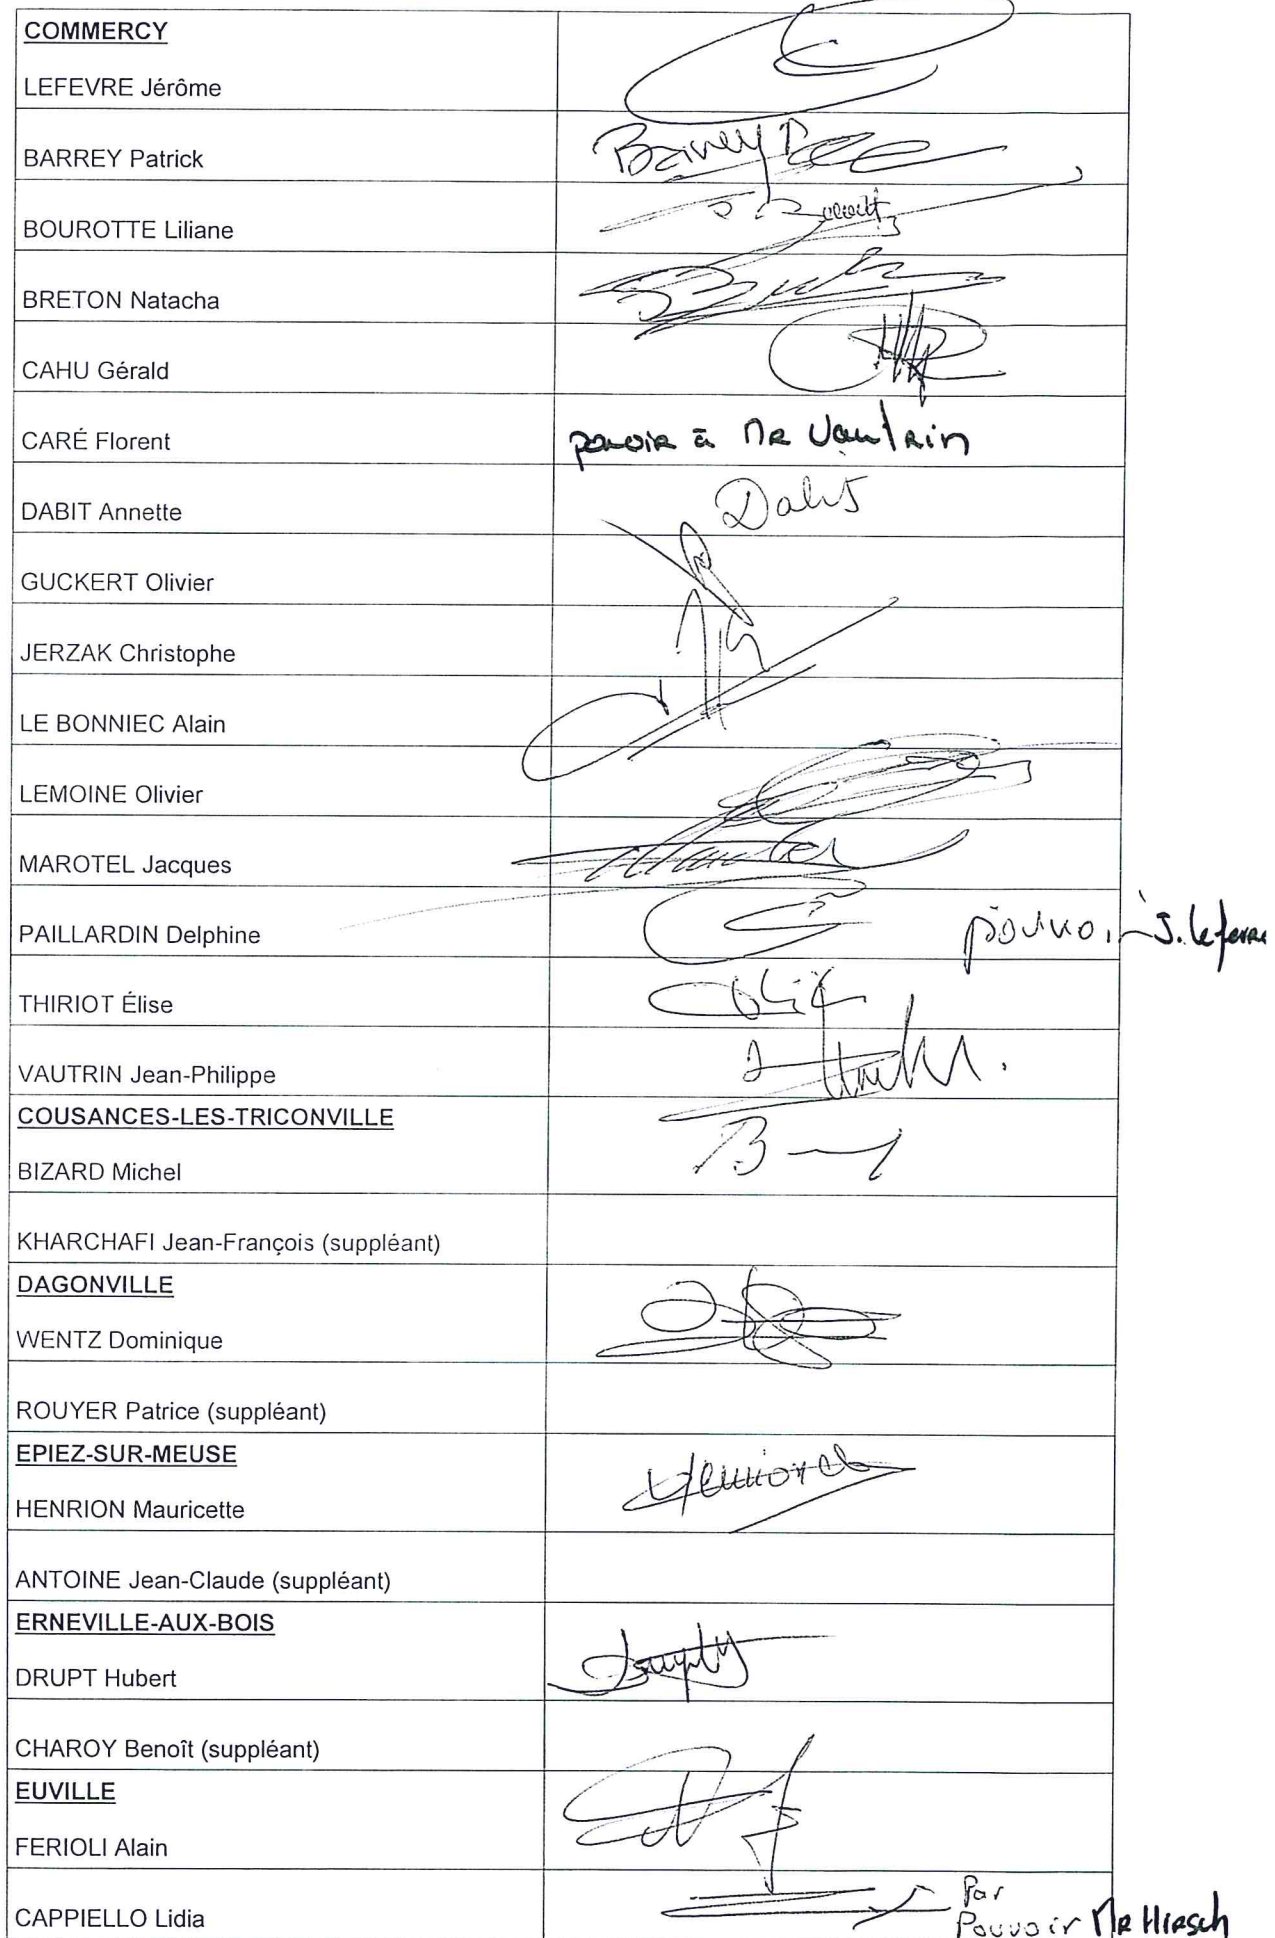 COMMERCY
LEFEVRE Jérôme
BARREY Patrick
Barrey P
BOUROTTE Liliane
BRETON Natacha
CAHU Gérald
CARÉ Florent
pouvoir à Mr Vautrin
DABIT Annette
Dabit
GUCKERT Olivier
JERZAK Christophe
LE BONNIEC Alain
LEMOINE Olivier
MAROTEL Jacques
PAILLARDIN Delphine
pouvoir J. Lefevre
THIRIOT Élise
VAUTRIN Jean-Philippe
COUSANCES-LES-TRICONVILLE
BIZARD Michel
KHARCHAFI Jean-François (suppléant)
DAGONVILLE
WENTZ Dominique
ROUYER Patrice (suppléant)
EPIEZ-SUR-MEUSE
HENRION Mauricette
ANTOINE Jean-Claude (suppléant)
ERNEVILLE-AUX-BOIS
DRUPT Hubert
CHAROY Benoît (suppléant)
EUVILLE
FERIOLI Alain
CAPPIELLO Lidia
Par
Pouvoir Mr Hirsch